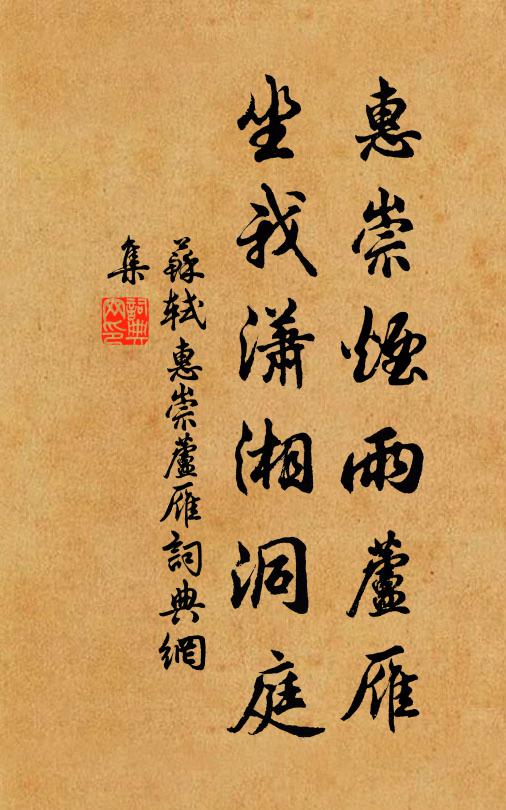 惠崇煙雨蘆雁
坐我瀟湘洞庭
蘇軾惠崇蘆雁詞典網
集
詞典